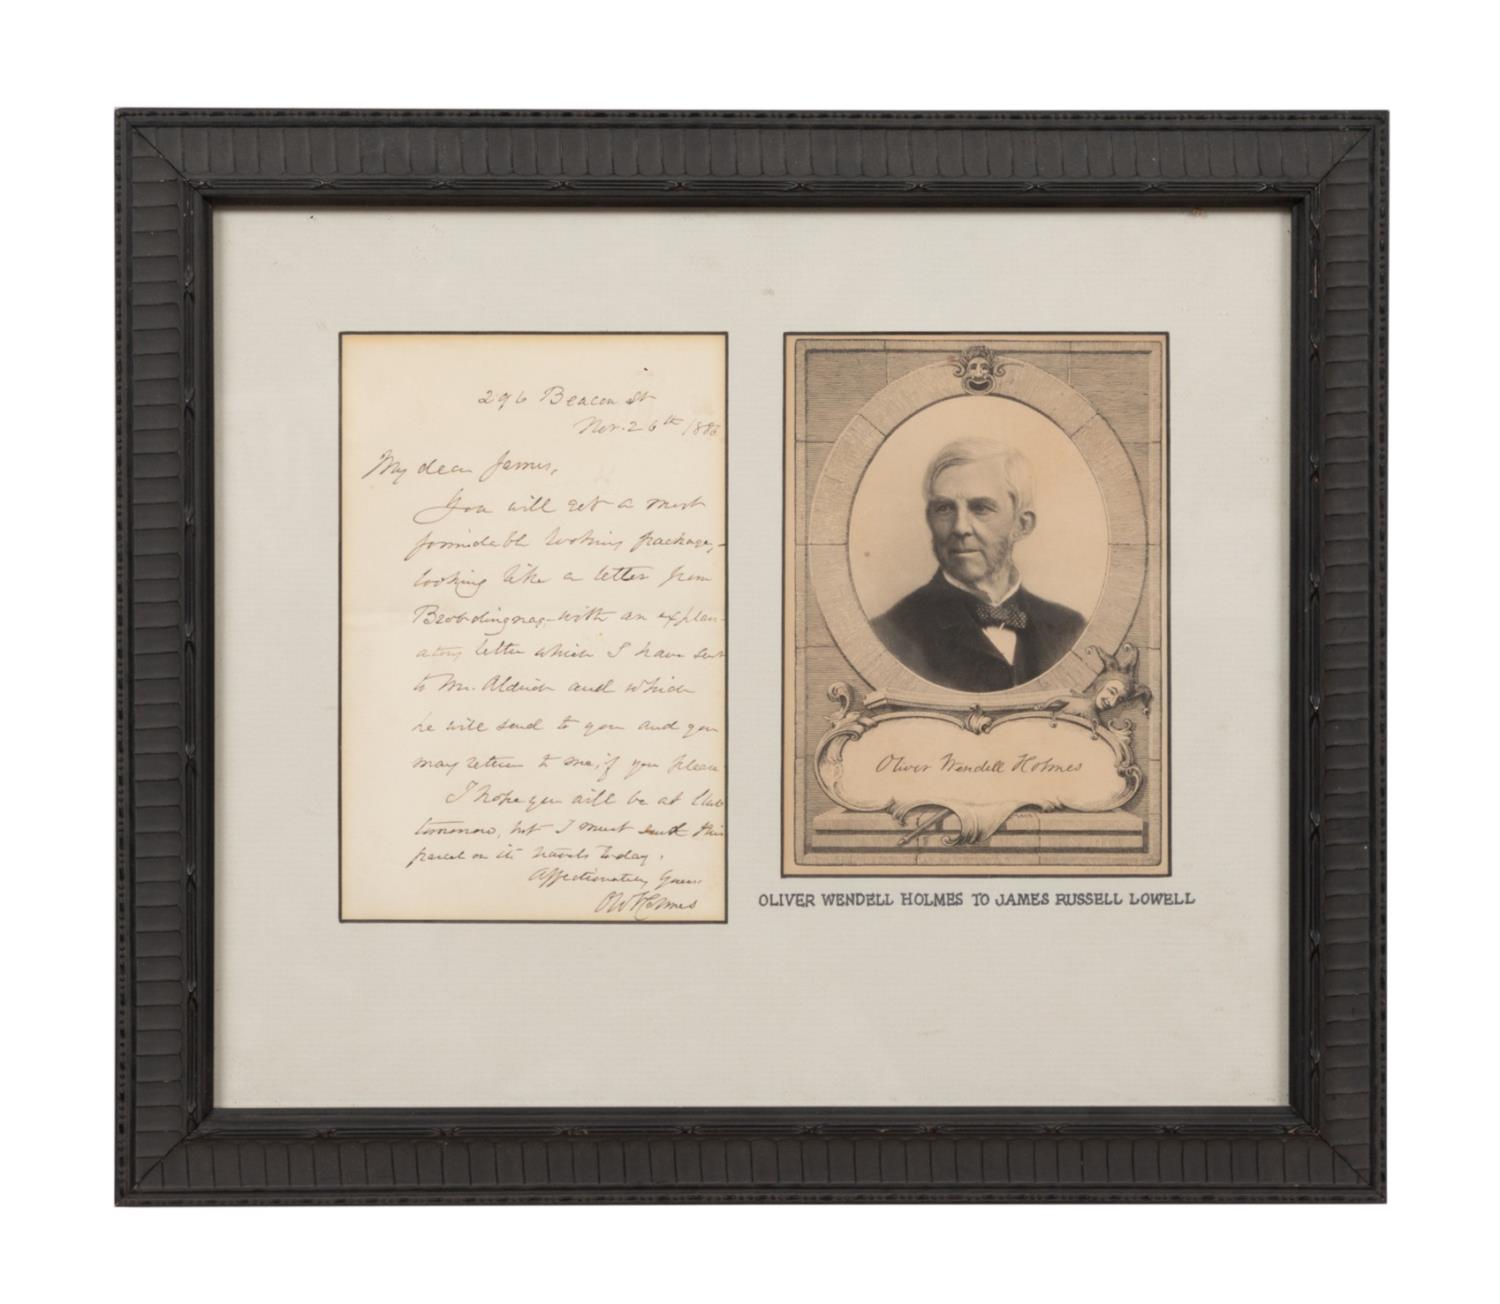 296 Beacon St
Nov. 26th 188
My dear James,
You will get a most
formidable looking package,-
looking like a letter from
Brobdingnag-with an explan-
atory letter which I have sent
to Mr. Aldrich and which
he will send to you and you
may return to me, if you please
I hope you will be at Club
tomorrow, but I must send this
parcel on its travels today.
Affectionately Yours
OWHolmes
Oliver Wendell Holmes
OLIVER WENDELL HOLMES TO JAMES RUSSELL LOWELL